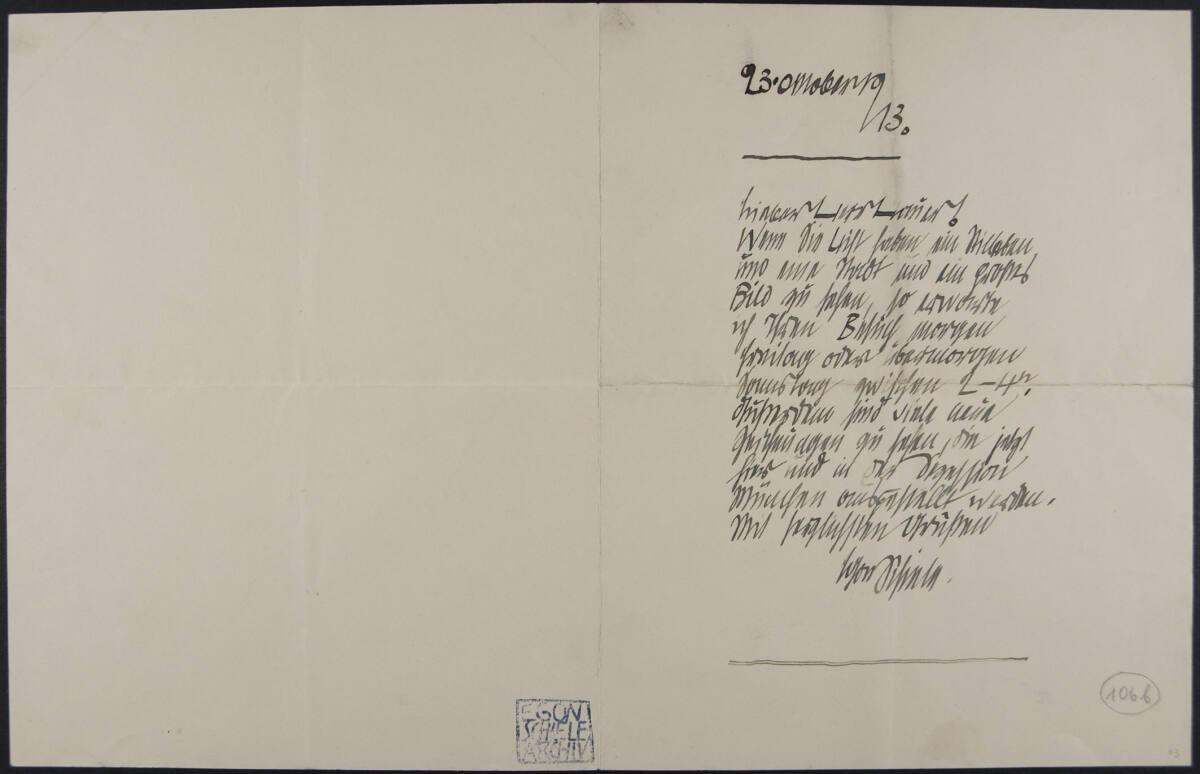 23. Oktober 19
13.
Lieber Herr Hauer!
Wenn Sie Lust haben ein Stilleben,
und eine Stadt und ein großes
Bild zu sehen, so erwarte
ich Ihren Besuch morgen
Freitag oder übermorgen
Samstag zwischen 2–4h.
Außerdem sind viele neue
Zeichnungen zu sehen, die jetzt
hier und in der Sezession
München ausgestellt werden.
Mit herzlichsten Grüßen
Egon Schiele.
EGON
SCHIELE
ARCHIV
106b